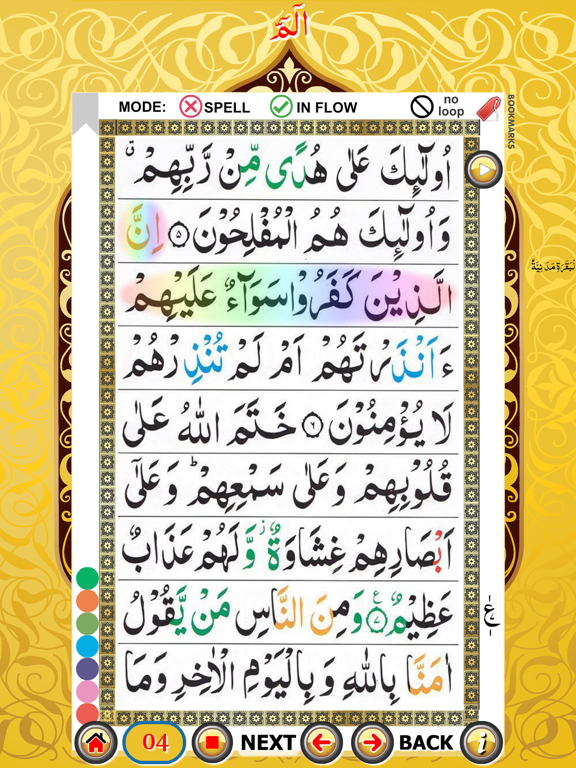 الٓمّٓ
MODE: SPELL IN FLOW no loop
BOOKMARKS
اُولٰٓئِكَ عَلٰى هُدًى مِّنْ رَّبِّهِمْ ۙ
وَاُولٰٓئِكَ هُمُ الْمُفْلِحُوْنَ ۝۵ اِنَّ
الَّذِيْنَ كَفَرُوْا سَوَآءٌ عَلَيْهِمْ
ءَاَنْذَرْتَهُمْ اَمْ لَمْ تُنْذِرْهُمْ
لَا يُؤْمِنُوْنَ ۝۶ خَتَمَ اللّٰهُ عَلٰى
قُلُوْبِهِمْ وَعَلٰى سَمْعِهِمْ ؕ وَعَلٰٓى
اَبْصَارِهِمْ غِشَاوَةٌ ؗ وَّلَهُمْ عَذَابٌ
عَظِيْمٌ ۝۷ ع وَمِنَ النَّاسِ مَنْ يَّقُوْلُ
اٰمَنَّا بِاللّٰهِ وَبِالْيَوْمِ الْاٰخِرِ وَمَا
البقرة مدنية
ع
04 NEXT BACK i